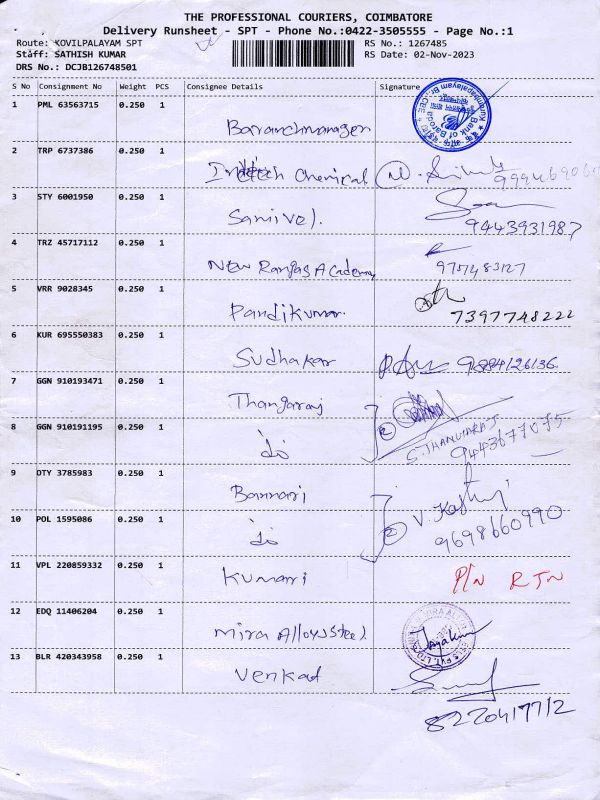 THE PROFESSIONAL COURIERS, COIMBATORE
Delivery Runsheet - SPT - Phone No.:0422-3505555 - Page No.:1
Route: KOVILPALAYAM SPT RS No.: 1267485
Staff: SATHISH KUMAR RS Date: 02-Nov-2023
DRS No.: DCJB126748501
S No Consignment No Weight PCS Consignee Details Signature
1 PML 63563715 0.250 1 Baranchmanager Bank of Baroda
2 TRP 6737386 0.250 1 Chemical
3 STY 6001950 0.250 1 Sanivel. 9443931987
4 TRZ 45717112 0.250 1 New Rangas Academy 9751483127
5 VRR 9028345 0.250 1 Pandikumar. 7397748222
6 KUR 695550383 0.250 1 Sudhakar 9884126136
7 GGN 910193471 0.250 1 Thangaraj
8 GGN 910191195 0.250 1 do 2 S. THANGARAJ 9443677875
9 OTY 3785983 0.250 1 Bannari
10 POL 1595086 0.250 1 do 2 V. 9698660990
11 VPL 220859332 0.250 1 Kumari P/N RTN
12 EDQ 11406204 0.250 1 Mira Alloys Steel Jayakumar
13 BLR 420343958 0.250 1 Venkat
8220417712